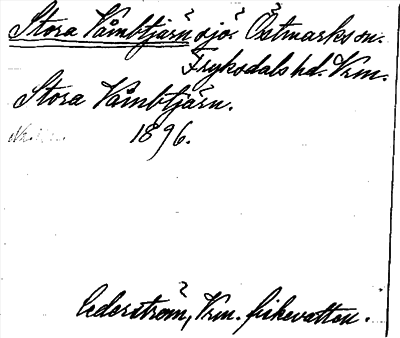 Stora Våmbtjärn, sjö i Östmarks sn.
Fryksdals hd. Vrm.
Stora Våmbtjärn.
1896.
Cederström, Vrm. fiskevatten.